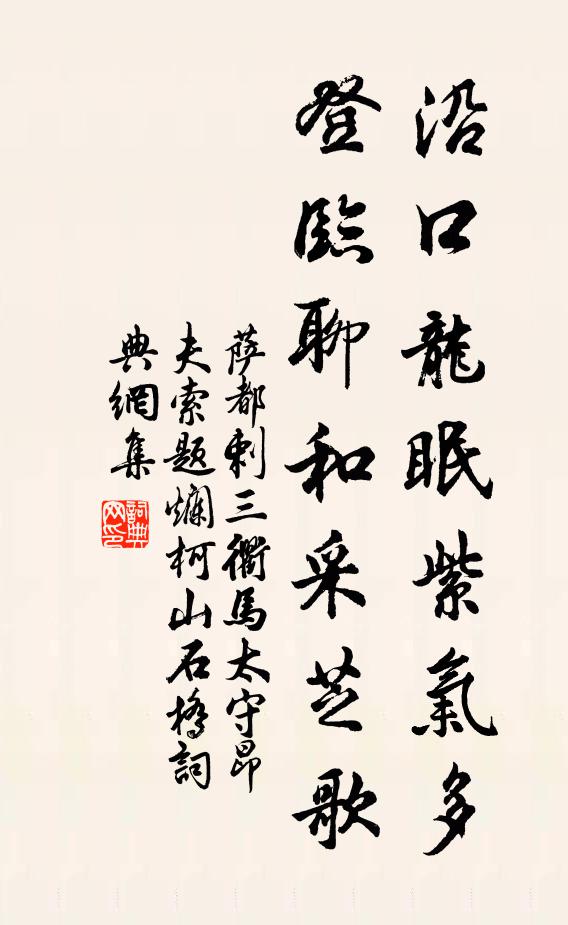 沿口龍眠紫氣多
登臨聊和采芝歌
萨都剌三衢馬太守昂
夫索題爛柯山石橋詞
典網集
詞典网印